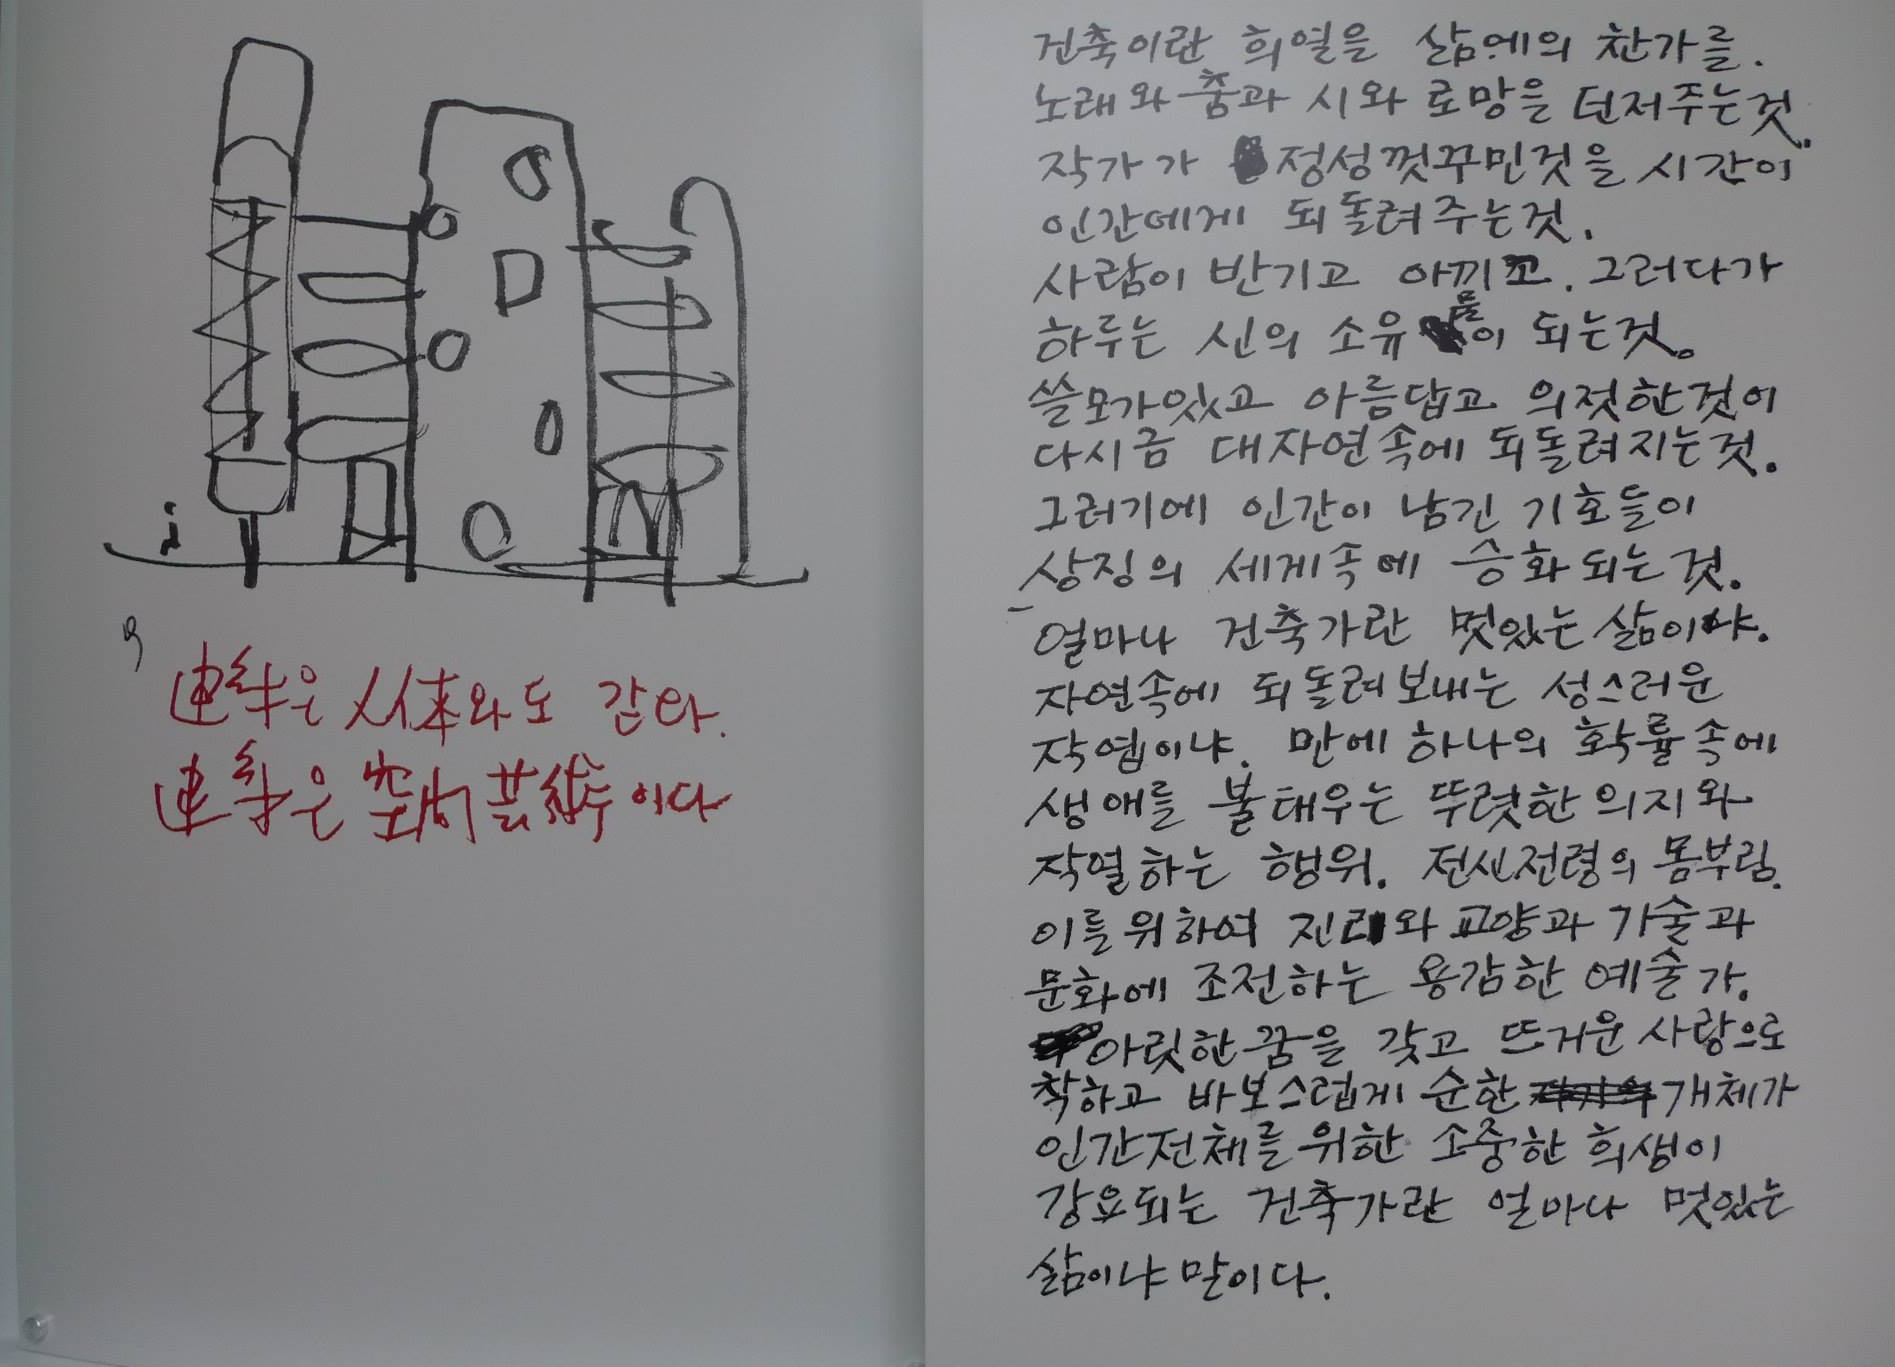 建築은 人体와도 같다.
建築은 空間芸術이다
건축이란 희열을 삶에의 찬가를.
노래와 춤과 시와 로망을 던져주는것.
작가가 정성껏꾸민것을 시간이
인간에게 되돌려주는것.
사람이 반기고 아끼고. 그러다가
하루는 신의 소유들이 되는것.
쓸모가있고 아름답고 의젓한것이
다시금 대자연속에 되돌려지는것.
그러기에 인간이 남긴 기호들이
상징의 세계속에 승화되는것.
얼마나 건축가란 멋있는 삶이냐.
자연속에 되돌려보내는 성스러운
작업이냐. 만에 하나의 확률속에
생애를 불태우는 뚜렷한 의지와
작열하는 행위. 전신전령의 몸부림.
이를위하여 진리와 교양과 기술과
문화에 조전하는 용감한 예술가.
아릿한꿈을 갖고 뜨거운 사랑으로
착하고 바보스럽게 순한 개체가
인간전체를위한 소중한 희생이
강요되는 건축가란 얼마나 멋있는
삶이냐 말이다.